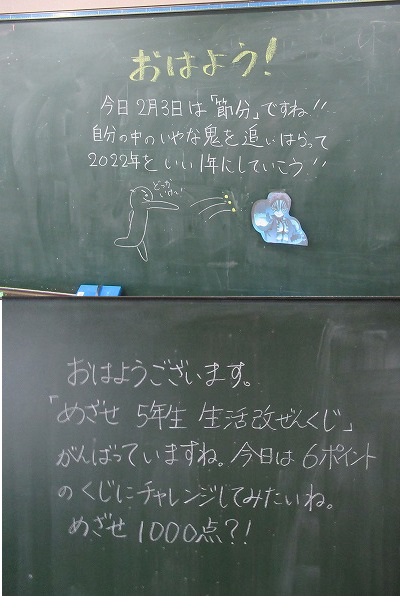 おはよう!
今日2月3日は「節分」ですね!!
自分の中のいやな鬼を追いはらって
2022年をいい1年にしていこう!!
おはようございます。
「めざせ 5年生 生活改ぜんくじ」
がんばっていますね。今日は6ポイント
のくじにチャレンジしてみたいね。
めざせ1000点?!